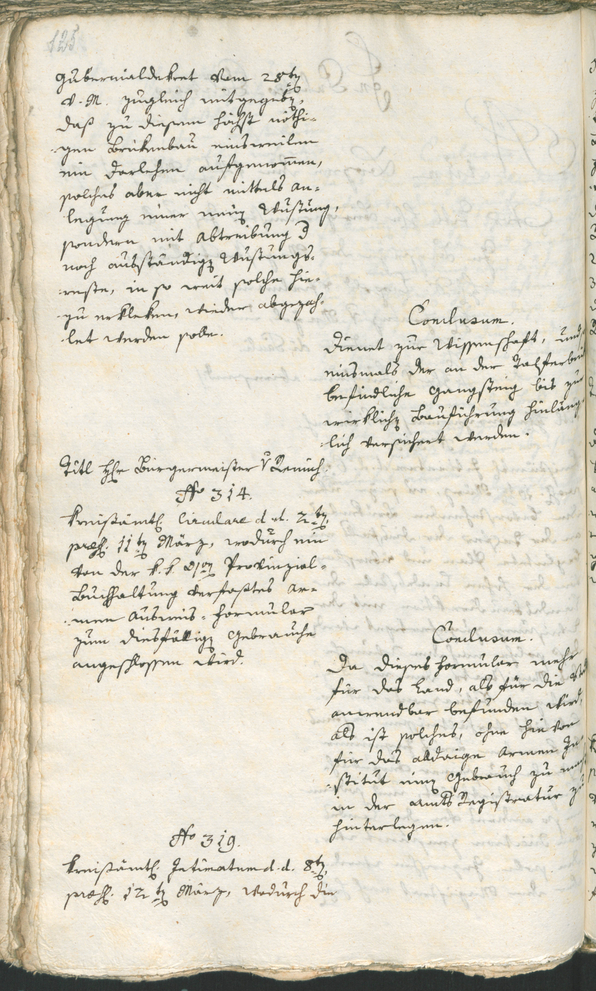 125
Gubernialdekret vom 28ten
v. M. zugleich mitgegeben,
daß zu diesem höchst nöthi-
gen Brükenbau einsweilen
ein Darlehen aufgenommen,
solches aber nicht mittels an-
legung einer neuen Rüstung,
sondern mit Abtreibung d
noch ausständigen Rüstungs-
reste, in so weit solche hie-
zu erkleken, wieder abgezah-
let werden solle.
Conclusum.
Dienet zur Wissenschaft, und
einsmals der an der Talferbrük
befindliche Gangsteg bis zur
wirklichen Bauführung hinläng-
lich versichert werden.
Titl Hr Bürgermeister v
No 314.
Kreisämtl. Circulare d. d. 2ten,
pres. 11ten März, wodurch ein
von der k k Prov͞inzial-
Buchhaltung verfaßtes Ar-
men Ausweis-Formular
zum diesfälligen Gebrauche
angeschlossen wird.
Conclusum.
Da dieses Formular mehr
für das Land, als für die Stadt
anwendbar befunden wird,
als ist solches, ohne hievon
für das aldaige Armen In-
stitut einen Gebrauch zu machen
in der Amts Registratur zu
hinterlegen.
No 319.
Kreisämtl. Intimatum d. d. 8ten,
pres. 12ten März, wodurch die